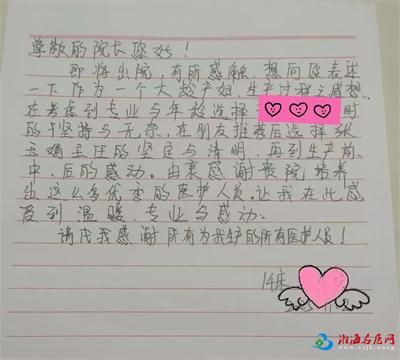 尊敬的院长您好！
即将出院，有所感触，想向您表述
一下作为一个大龄产妇，生产过程之感想，
在考虑到专业与年龄选择 时
的坚持与无奈，在朋友推荐后选择张
玉娟主任的坚定与清明，再到生产前、
中、后的感动。由衷感谢贵院培养
出这么多优秀的医护人员。让我在此感
受到温暖、专业与感动。
请代我感谢所有为我生产的所有医护人员！
14床
淮海名医网